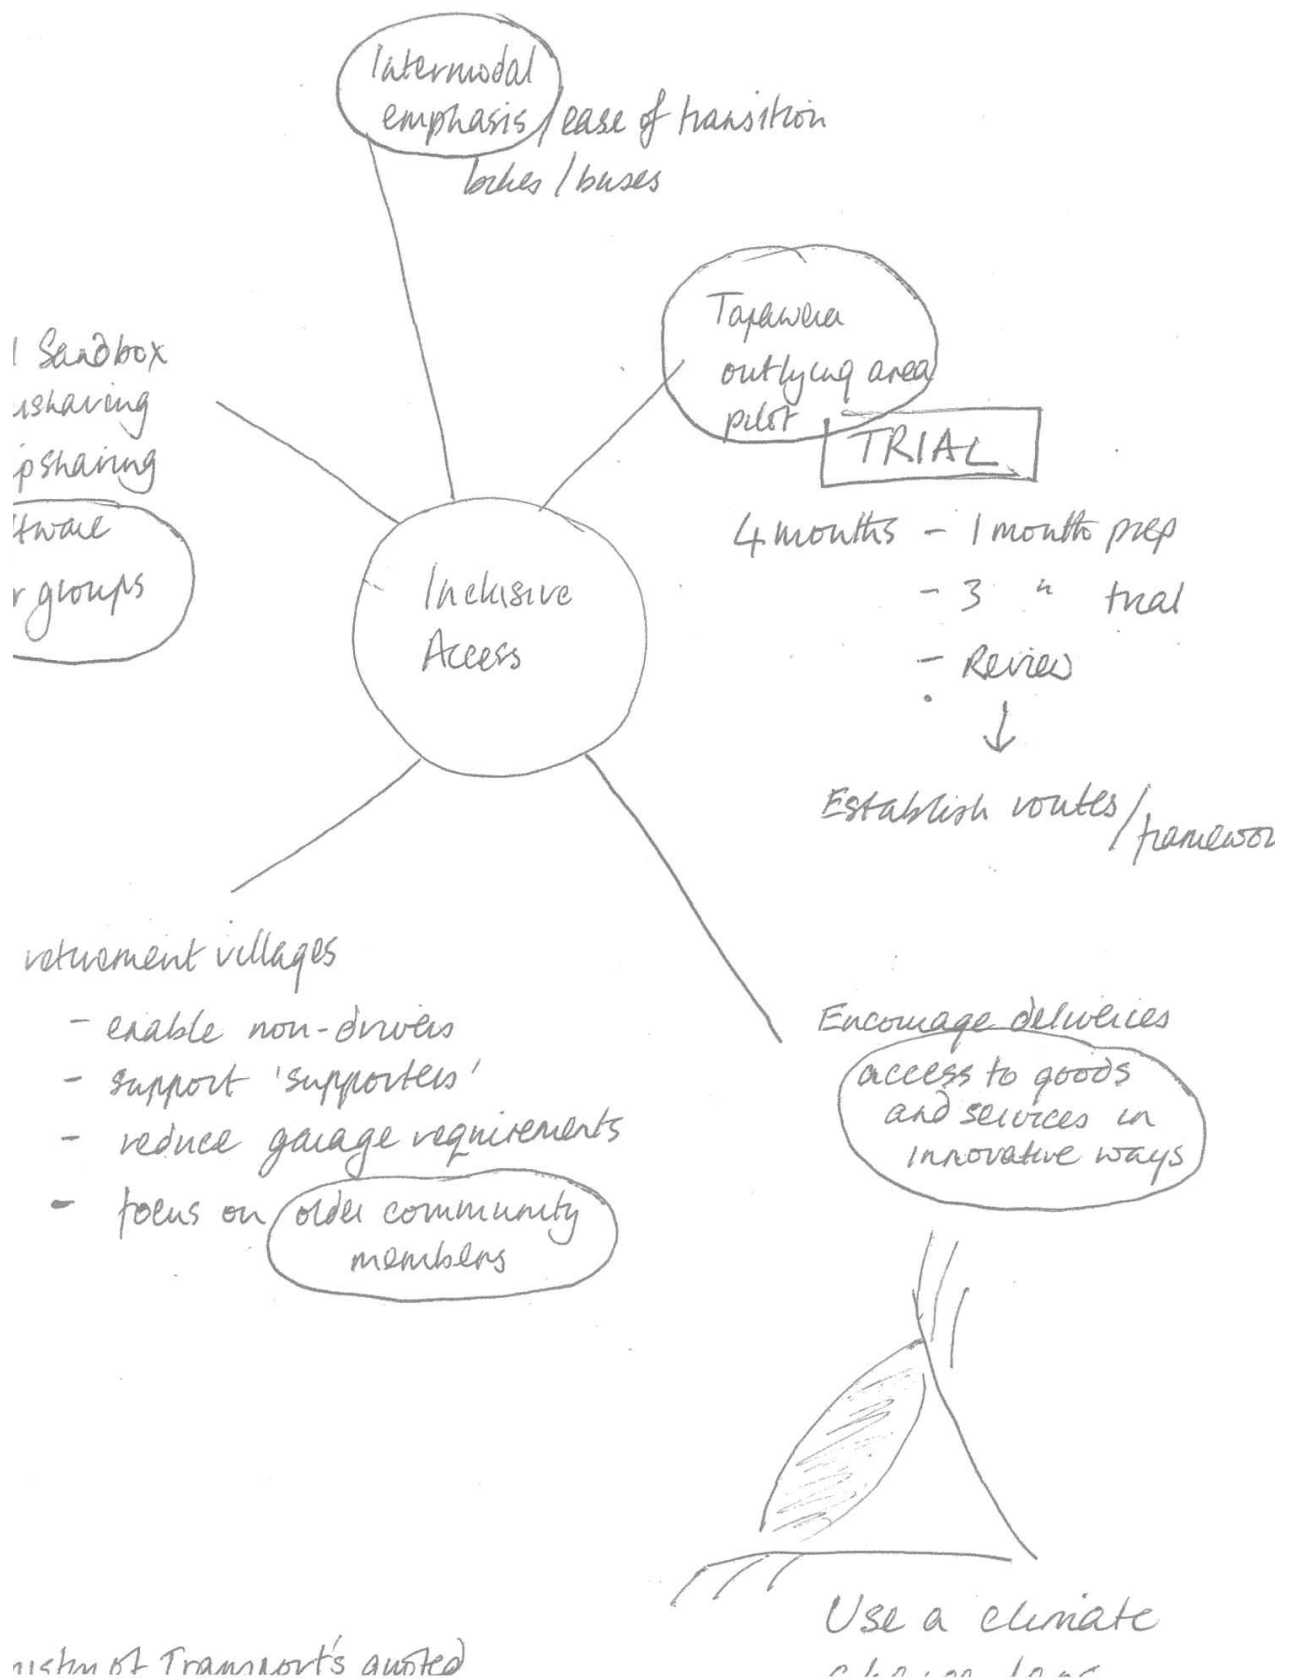 Intermodal
emphasis / ease of transition
bikes / buses
Tapawera
outlying area
pilot
TRIAL
4 months - 1 month prep
- 3 " trial
- Review
↓
Establish routes / framewor
l Sandbox
rsharing
psharing
ftware
r groups
Inclusive
Access
retirement villages
- enable non-drivers
- support 'supporters'
- reduce garage requirements
- focus on older community
members
Encourage deliveries
access to goods
and services in
innovative ways
Use a climate
nistry of Transport's quoted